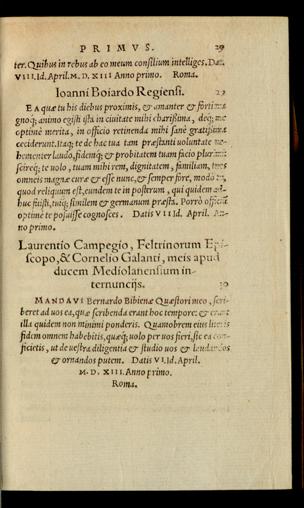 PRIMVS. 29
ter. Quibus in rebus ab eo meum consilium intelliges. Dat.
VIII. Id. April. M. D. XIII Anno primo. Roma.
Ioanni Boiardo Regiensi. 29
EA quæ tu his diebus proximis, & amanter & forti ma
gnoq; animo egisti ista in ciuitate mihi charissima, deq; me
optimè merita, in officio retinenda mihi sanè gratissima
ceciderunt. Itaq; te de hac tua tam præstanti uoluntate ue
hementer laudo, fidemq; & probitatem tuam facio plurimi:
scireq; te uolo, tuam mihi rem, dignitatem, familiam, tuos
omneis magnæ curæ & esse nunc, & semper fore, modo tu,
quod reliquum est, eundem te in posterum, qui quidem ad-
huc fuisti, tuiq; similem & germanum præsta. Porrò officia
optimè te posuisse cognosces. Datis VIII Id. April. An-
no primo.
Laurentio Campegio, Feltrinorum Epi-
scopo, & Cornelio Galanti, meis apud
ducem Mediolanensium in-
ternuncijs. 30
MANDAVI Bernardo Bibienæ Quæstori meo, scri-
beret ad uos ea, quæ scribenda erant hoc tempore: & erant
illa quidem non minimi ponderis. Quamobrem eius literis
fidem omnem habebitis, quæq; uolo per uos fieri, sic ea con-
ficietis, ut de uestra diligentia & studio uos & laudandos
& ornandos putem. Datis VI. Id. April.
M. D. XIII. Anno primo.
Roma.